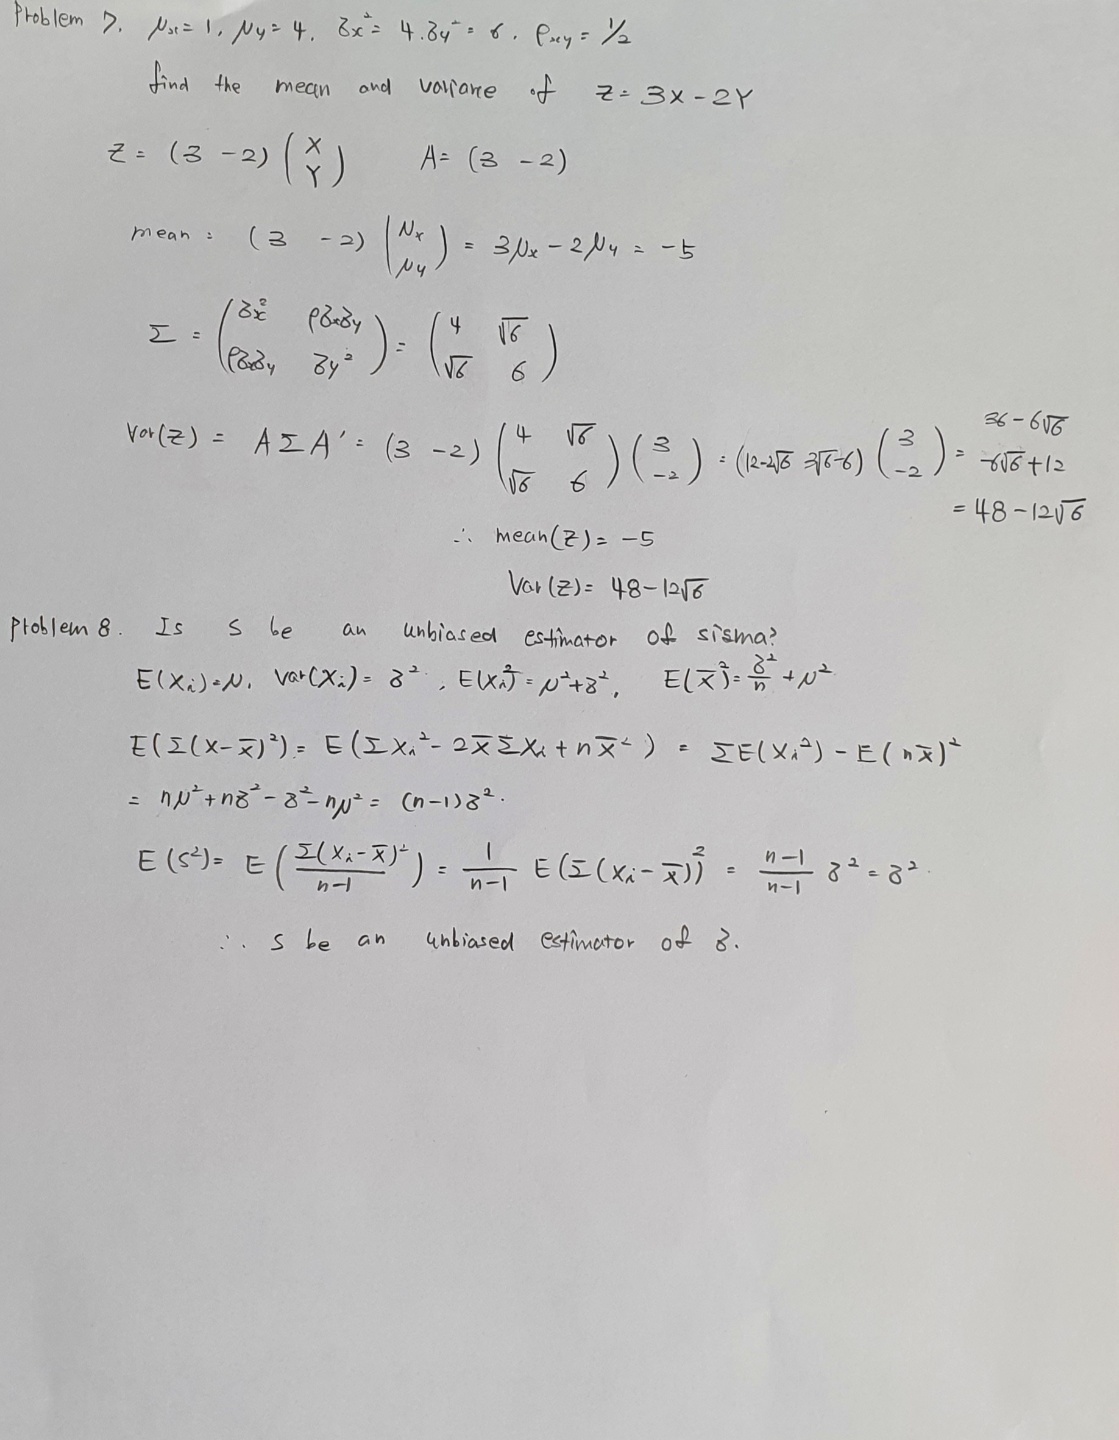 Problem 7. μx = 1, μy = 4, σx² = 4. σy² = 6. ρxy = 1/2
find the mean and variane of Z = 3X - 2Y
Z = (3 -2) (X Y) A = (3 -2)
mean : (3 -2) (μx μy) = 3μx - 2μy = -5
Σ = (σx² ρσxσy ρσxσy σy²) = (4 √6 √6 6)
Var(Z) = AΣA' = (3 -2) (4 √6 √6 6) (3 -2) = (12-2√6 3√6-6) (3 -2) = 36 - 6√6 -6√6 + 12
= 48 - 12√6
∴ mean(Z) = -5
Var(Z) = 48 - 12√6
Problem 8. Is S be an unbiased estimator of sisma?
E(Xi) = μ, Var(Xi) = σ², E(Xi)² = μ² + σ², E(X̄)² = σ²/n + μ²
E(Σ(X-X̄)²) = E(ΣXi² - 2X̄ΣXi + nX̄²) = ΣE(Xi²) - E(nX̄)²
= nμ² + nσ² - σ² - nμ² = (n-1)σ².
E(S²) = E(Σ(Xi-X̄)²/n-1) = 1/n-1 E(Σ(Xi-X̄))² = n-1/n-1 σ² = σ².
∴ S be an unbiased estimator of σ.